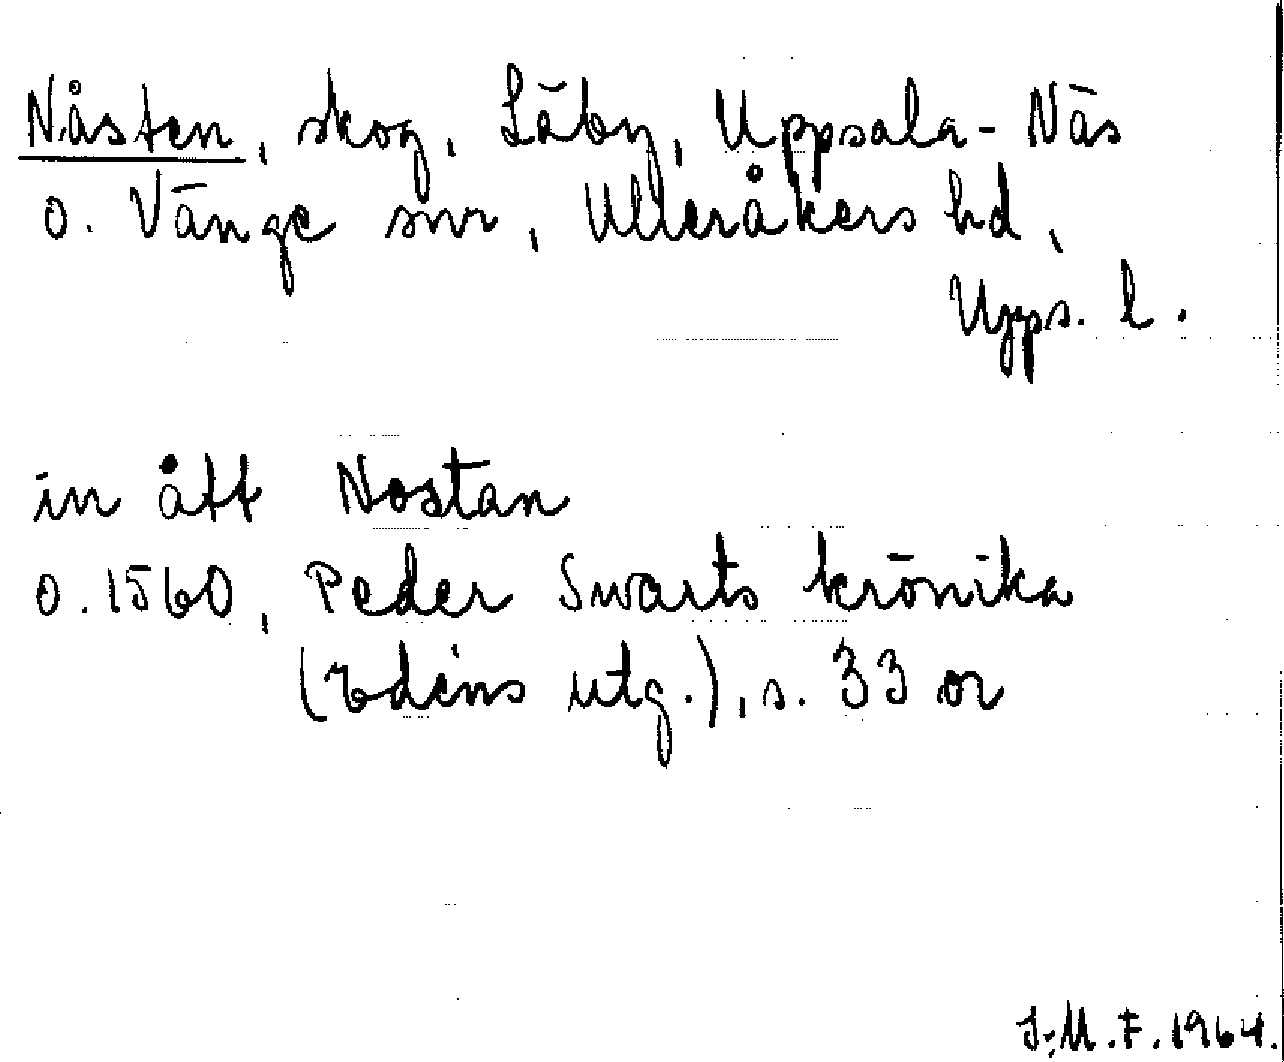 Nåsten, skog, Läby, Uppsala-Näs
o. Vänge snr, Ulleråkers hd,
Upps. l.
inått Nostan
o. 1560, Peder Swarts krönika
(Edéns utg.), s. 33 or
J.M.F. 1964.